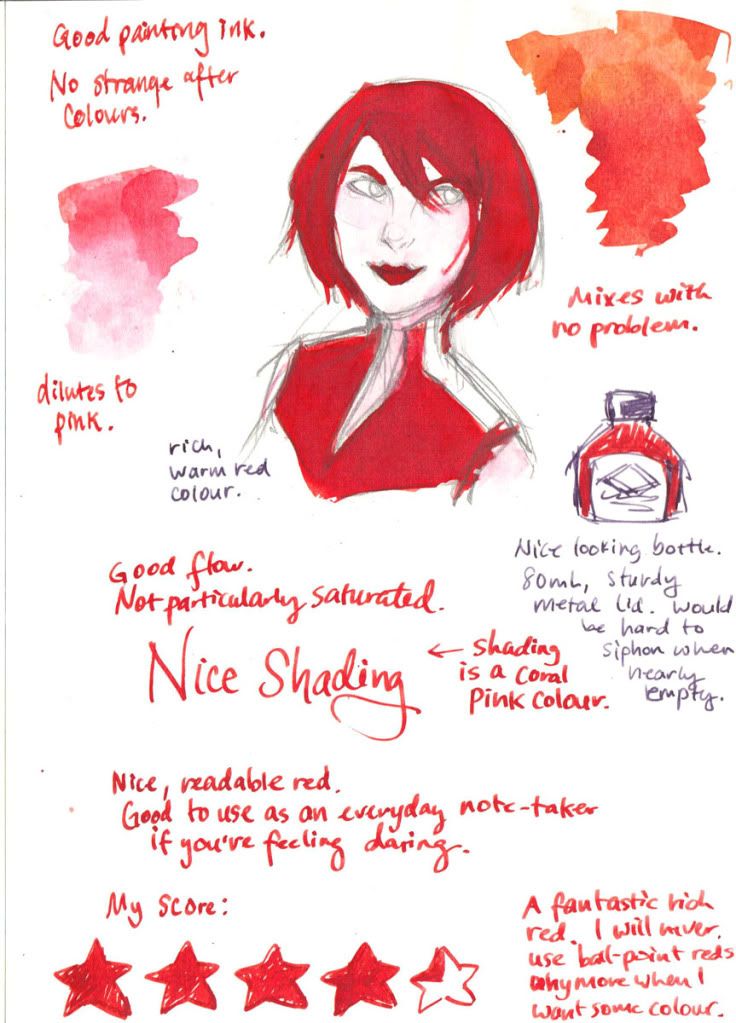 Good painting ink.
No strange after
colours.
Mixes with
no problem.
dilutes to
pink.
rich,
warm red
colour.
Nice looking bottle.
80mL, sturdy
metal lid. Would
be hard to
siphon when
nearly
empty.
Good flow.
Not particularly saturated.
Nice Shading
← shading
is a coral
pink colour.
Nice, readable red.
Good to use as an everyday note-taker
if you're feeling daring.
My score:
A fantastic rich
red. I will never
use ball-point reds
anymore when I
want some colour.